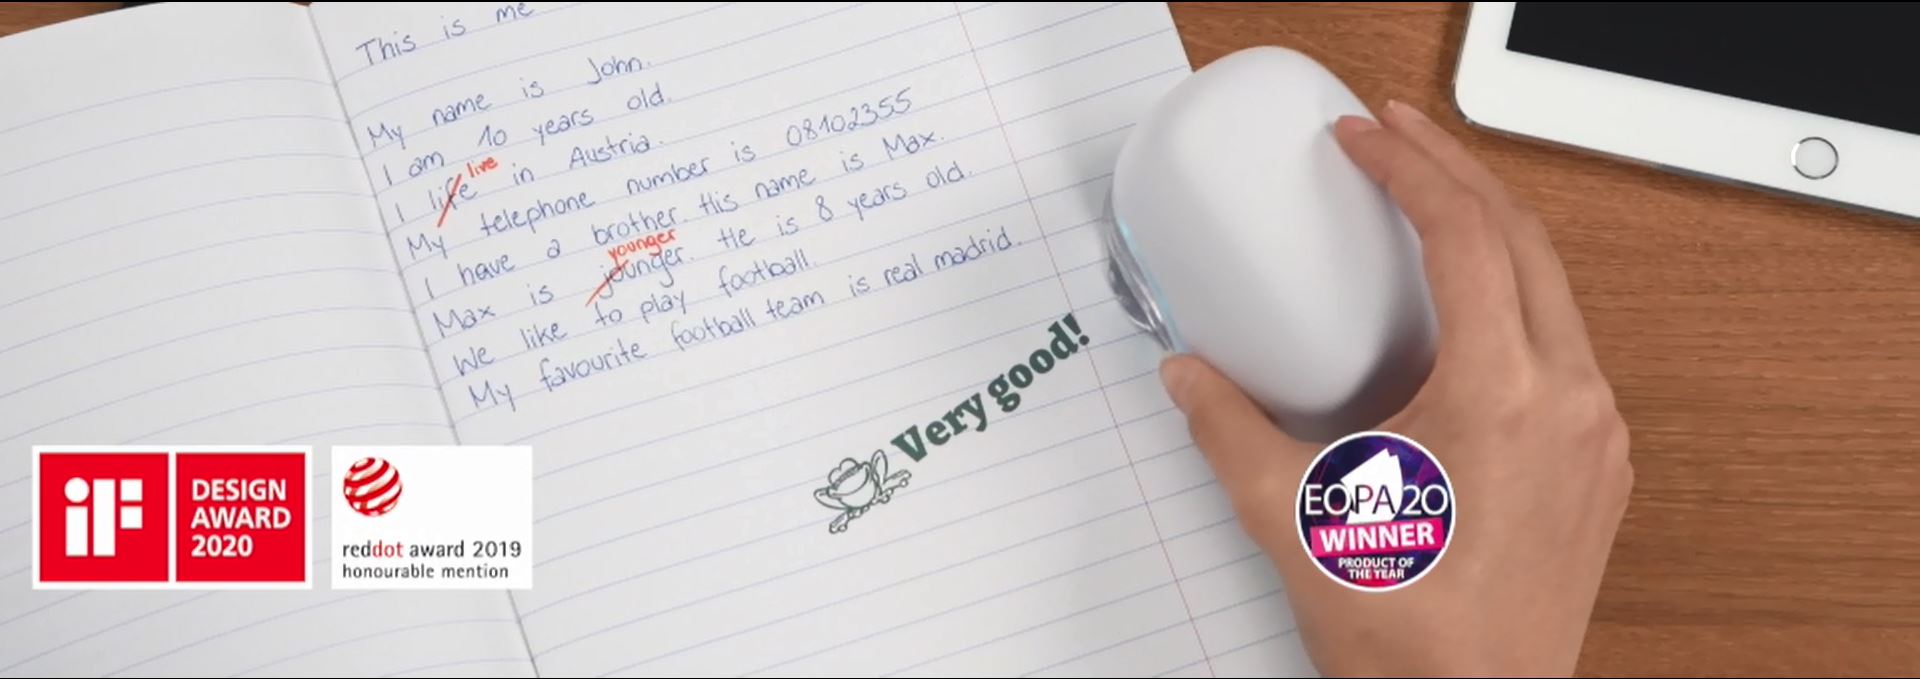 This is me
My name is John.
I am 10 years old.
I life in Austria.
live
My telephone number is 08102355
I have a brother. His name is Max.
Max is jounger. He is 8 years old.
younger
We like to play football.
My favourite football team is real madrid.
Very good!
iF
DESIGN
AWARD
2020
reddot award 2019
honourable mention
EOPA20
WINNER
PRODUCT OF
THE YEAR